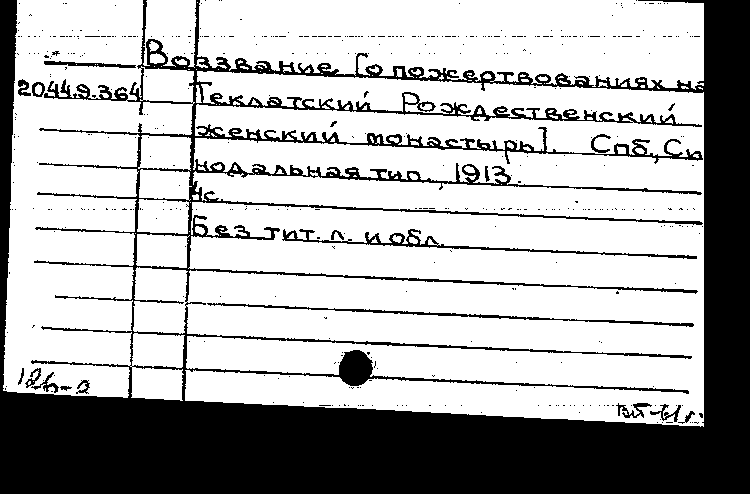 Воззвание [о пожертвованиях на
20.44.9.364 Теклатский Рождественский
женский монастырь]. Спб., Си
нодальная тип., 1913.
4с.
Без тит. л. и обл.